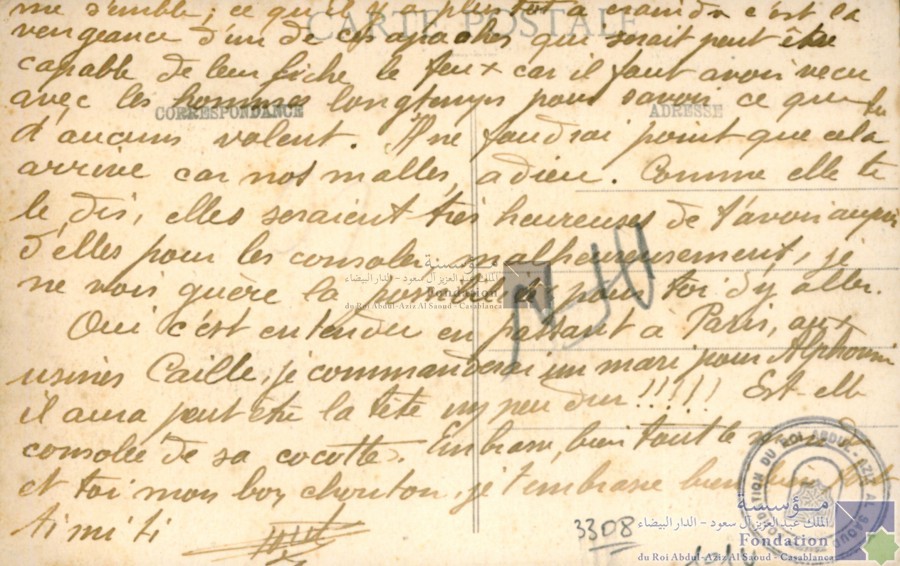 me semble; ce qu'il y a plus tôt à craindre c'est la
CARTE POSTALE
vengeance d'un de ces apaches qui serait peut être
capable de leur fiche le feux car il faut avoir vecu
avec les hommes longtemps pour savoir ce que
CORRESPONDANCE
ADRESSE
d'aucuns valent. Il ne faudrai point que cela
arrive car nos malles, adieu. Comme elle te
le dis, elles seraient très heureuses de t'avoir auprès
d'elles pour les consoler malheureusement, je
ne vois guère la possibilité pour toi d'y aller.
Oui c'est entendu en passant à Paris, aux
usines Caille, je commanderai un mari pour Alphonsine
il aura peut être la tête un peu dur !!!!! Est-elle
consolée de sa cocotte. Embrasse bien tout le monde
et toi mon boy chouton, je t'embrasse bien bien fort
ti mi ti
3308
مؤسسة
الملك عبد العزيز آل سعود - الدار البيضاء
Fondation
du Roi Abdul-Aziz Al Saoud - Casablanca
FONDATION DU ROI ABDUL-AZIZ AL SAOUD
مؤسسة
الملك عبد العزيز آل سعود - الدار البيضاء
Fondation
du Roi Abdul-Aziz Al Saoud - Casablanca